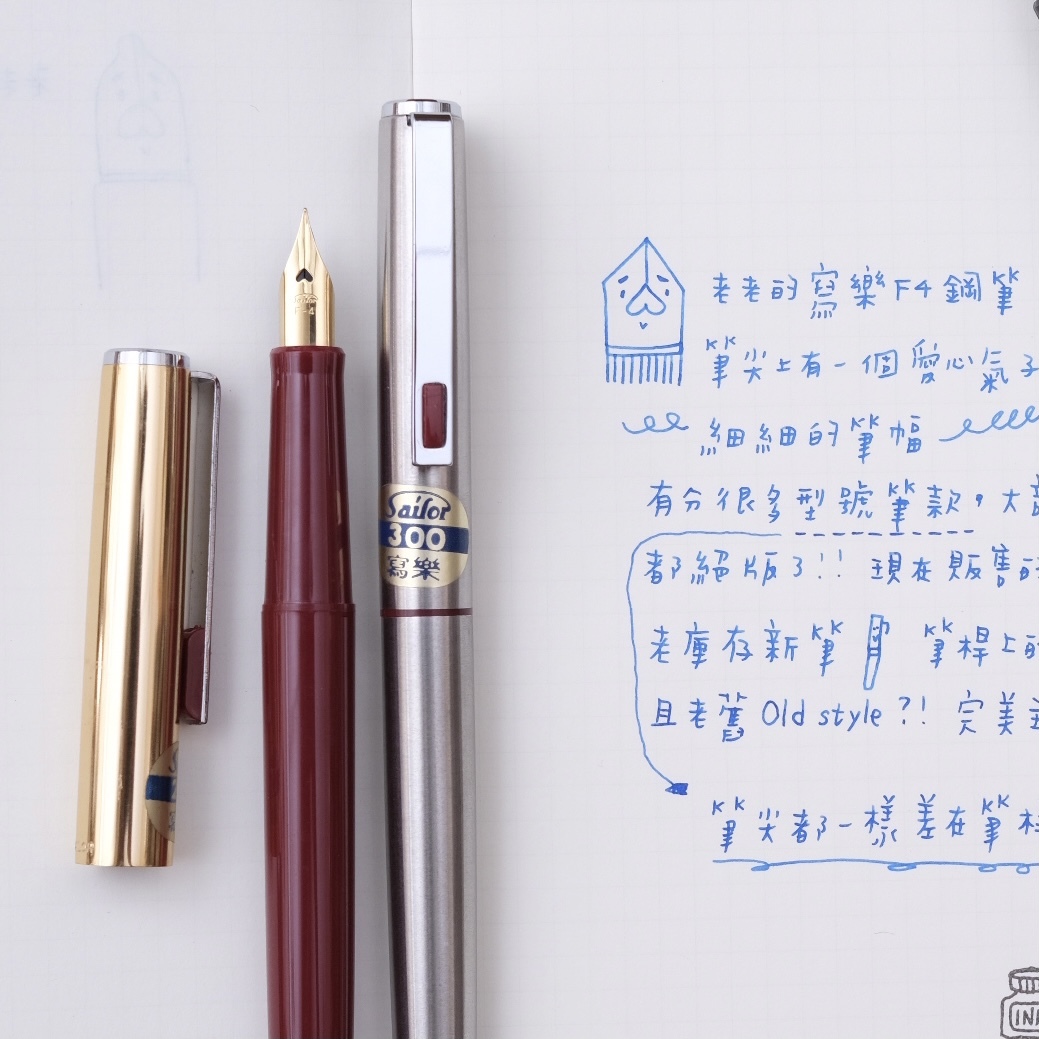 Sailor
300
寫樂
F-4
老老的寫樂F4鋼筆
筆尖上有一個愛心氣孔
細細的筆幅
有分很多型號筆款，大部
都絕版了!! 現在販售的
老庫存新筆 筆桿上的
且老舊 Old style ?! 完美
筆尖都一樣差在筆